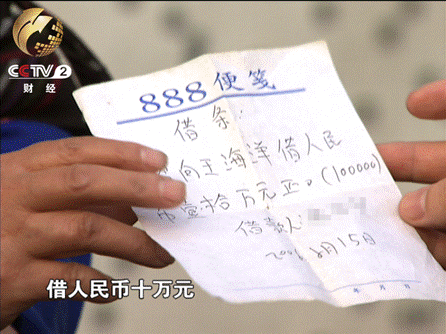 CCTV 2
财经
888便笺
借条:
向王海洋借人民
币壹拾万元正。(100000)
借款人:
8月15日
借人民币十万元
年 月 日